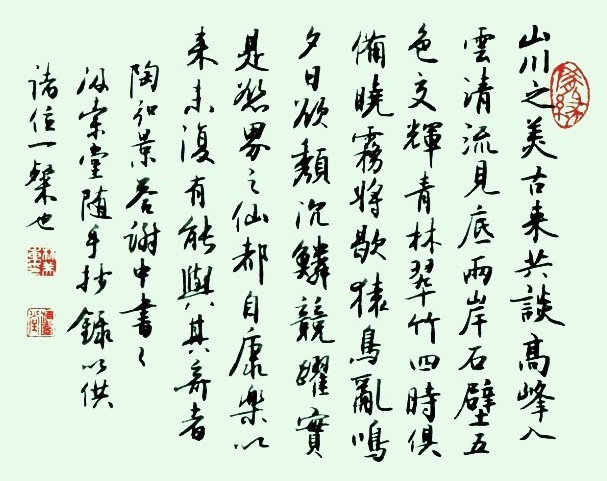 山川之美古来共談高峰入
雲清流見底兩岸石壁五
色交輝青林翠竹四時俱
備曉霧將歇猿鳥亂鳴
夕日欲頹沉鱗競躍實
是慾界之仙都自康樂以
来未復有能與其奇者
陶弘景答謝中書〻
堂随手抄錄以供
諸位一粲也